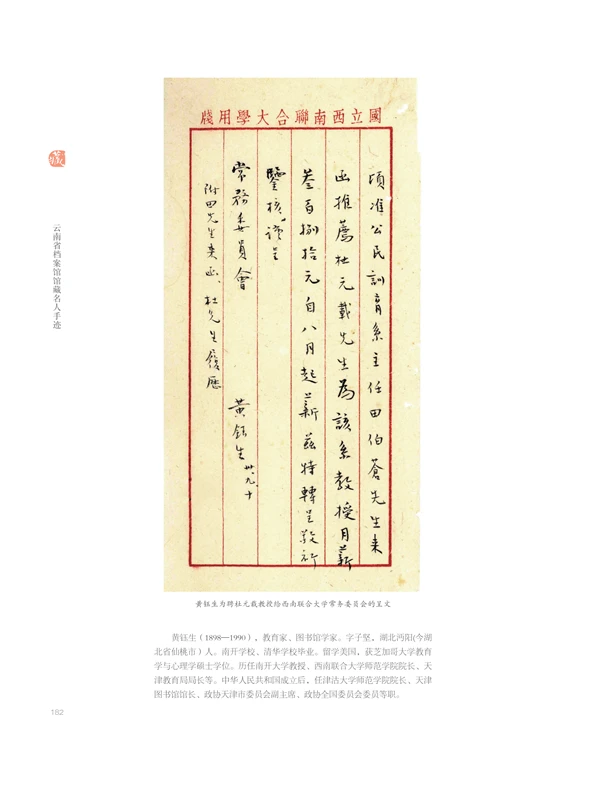 國立西南聯合大學用牋
頃准公民訓育系主任田伯蒼先生来
函推薦杜元載先生為該系教授月薪
叁百捌拾元自八月起薪茲特轉呈敬祈
鑒核謹呈
常務委員會
黃鈺生 卅、九、十
附田先生来函、杜先生履歷
藏
云南省档案馆馆藏名人手迹
黄钰生为聘杜元载教授给西南联合大学常务委员会的呈文
黄钰生（1898—1990），教育家、图书馆学家。字子坚，湖北沔阳(今湖
北省仙桃市）人。南开学校、清华学校毕业。留学美国，获芝加哥大学教育
学与心理学硕士学位。历任南开大学教授、西南联合大学师范学院院长、天
津教育局局长等。中华人民共和国成立后，任津沽大学师范学院院长、天津
图书馆馆长、政协天津市委员会副主席、政协全国委员会委员等职。
182